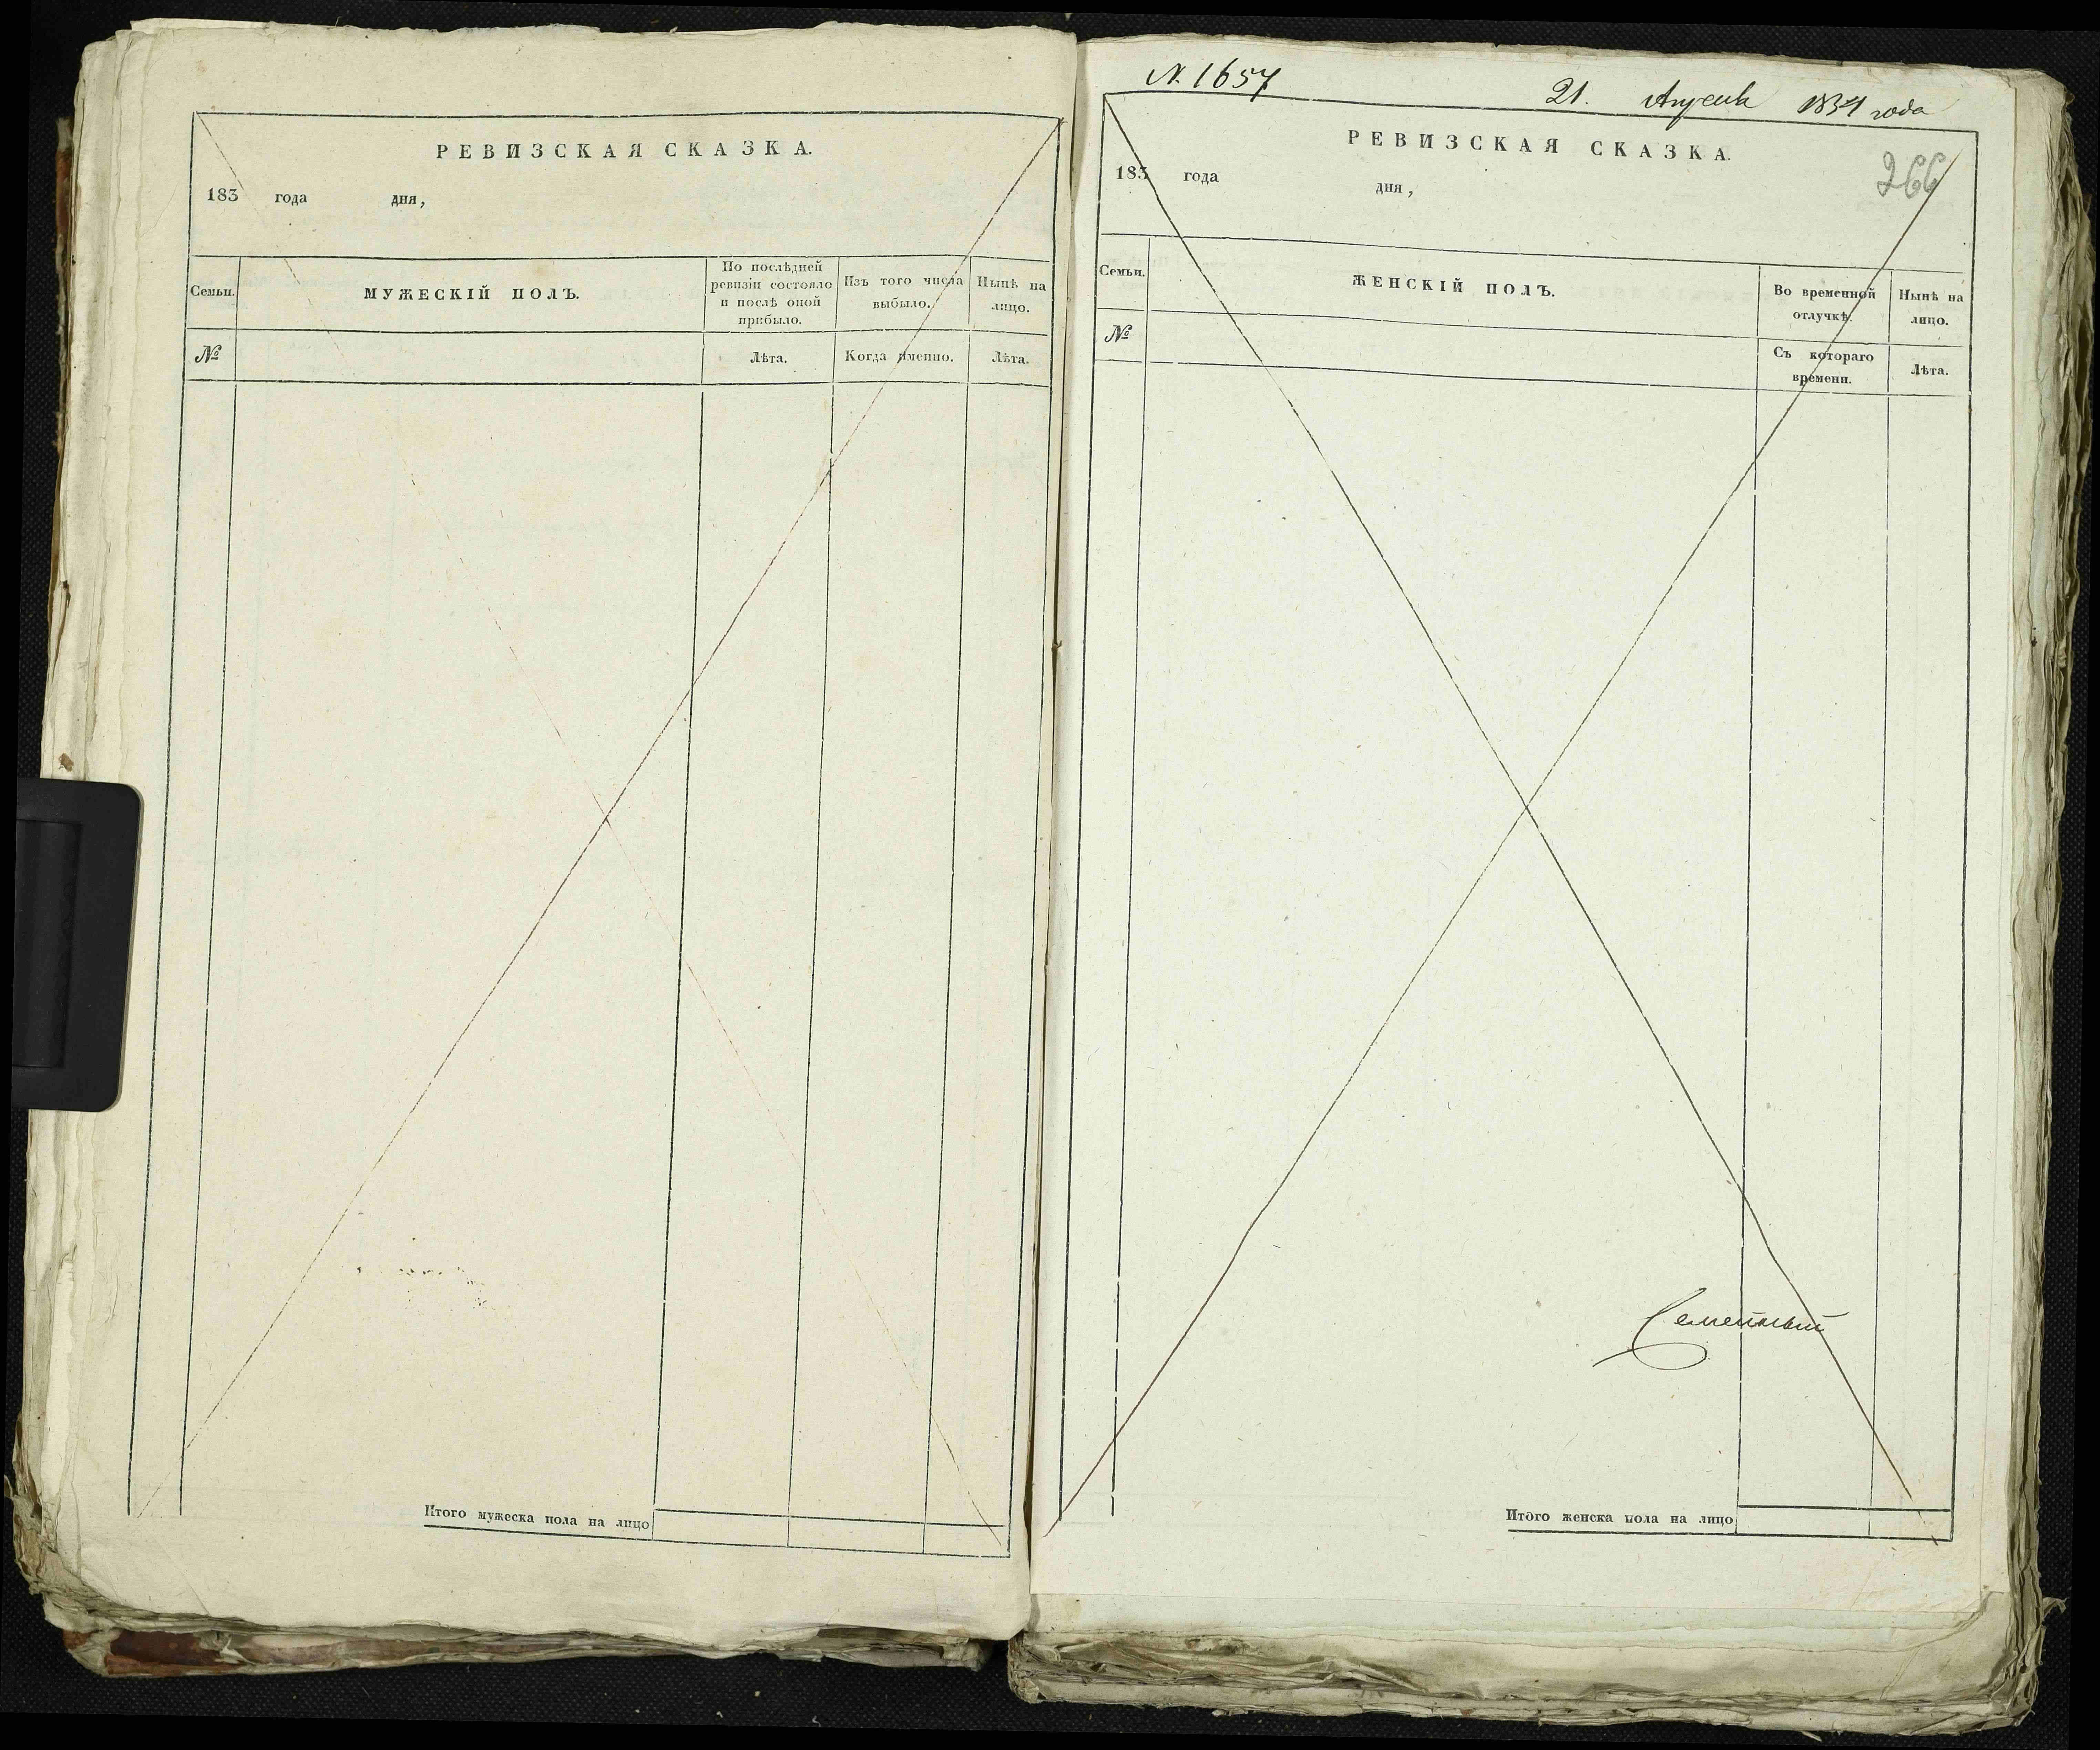 РЕВИЗСКАЯ СКАЗКА.
183 года дня,
Семьи.
МУЖЕСКІЙ ПОЛЪ.
По послѣдней
ревизіи состояло
и послѣ оной
прибыло.
Изъ того числа
выбыло.
Нынѣ на
лицо.
№
Лѣта.
Когда именно.
Лѣта.
Итого мужеска пола на лицо
N. 1657
21. Апреля 1834 года
РЕВИЗСКАЯ СКАЗКА.
266
183 года дня,
Семьи.
ЖЕНСКІЙ ПОЛЪ.
Во временной
отлучкѣ.
Нынѣ на
лицо.
№
Съ котораго
времени.
Лѣта.
Семейный
Итого женска пола на лицо